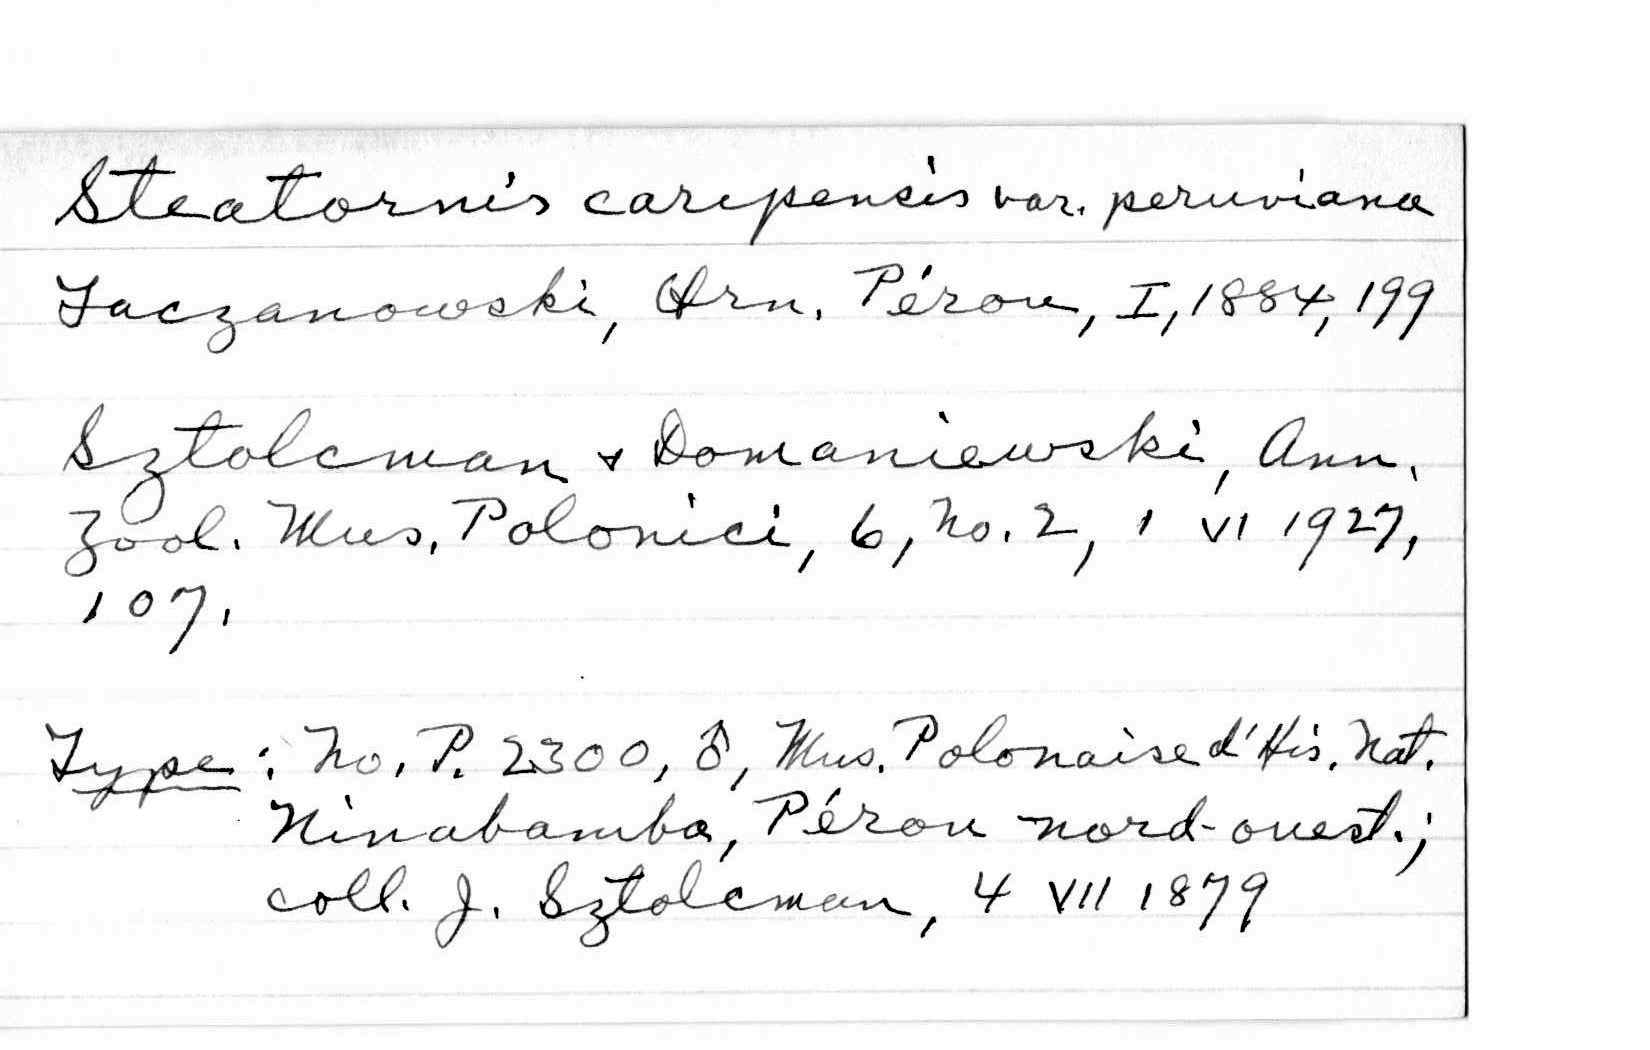 Steatornis caripensis var. peruviana
Taczanowski, Orn. Pérou, I, 1884, 199
Sztolcman & Domaniewski, Ann.
Zool. Mus. Polonici, 6, No. 2, 1 VI 1927,
107.
Type: No. P. 2300, ♂, Mus. Polonaise d'His. Nat.
Ninabamba, Pérou nord-ouest.;
coll. J. Sztolcman, 4 VII 1879